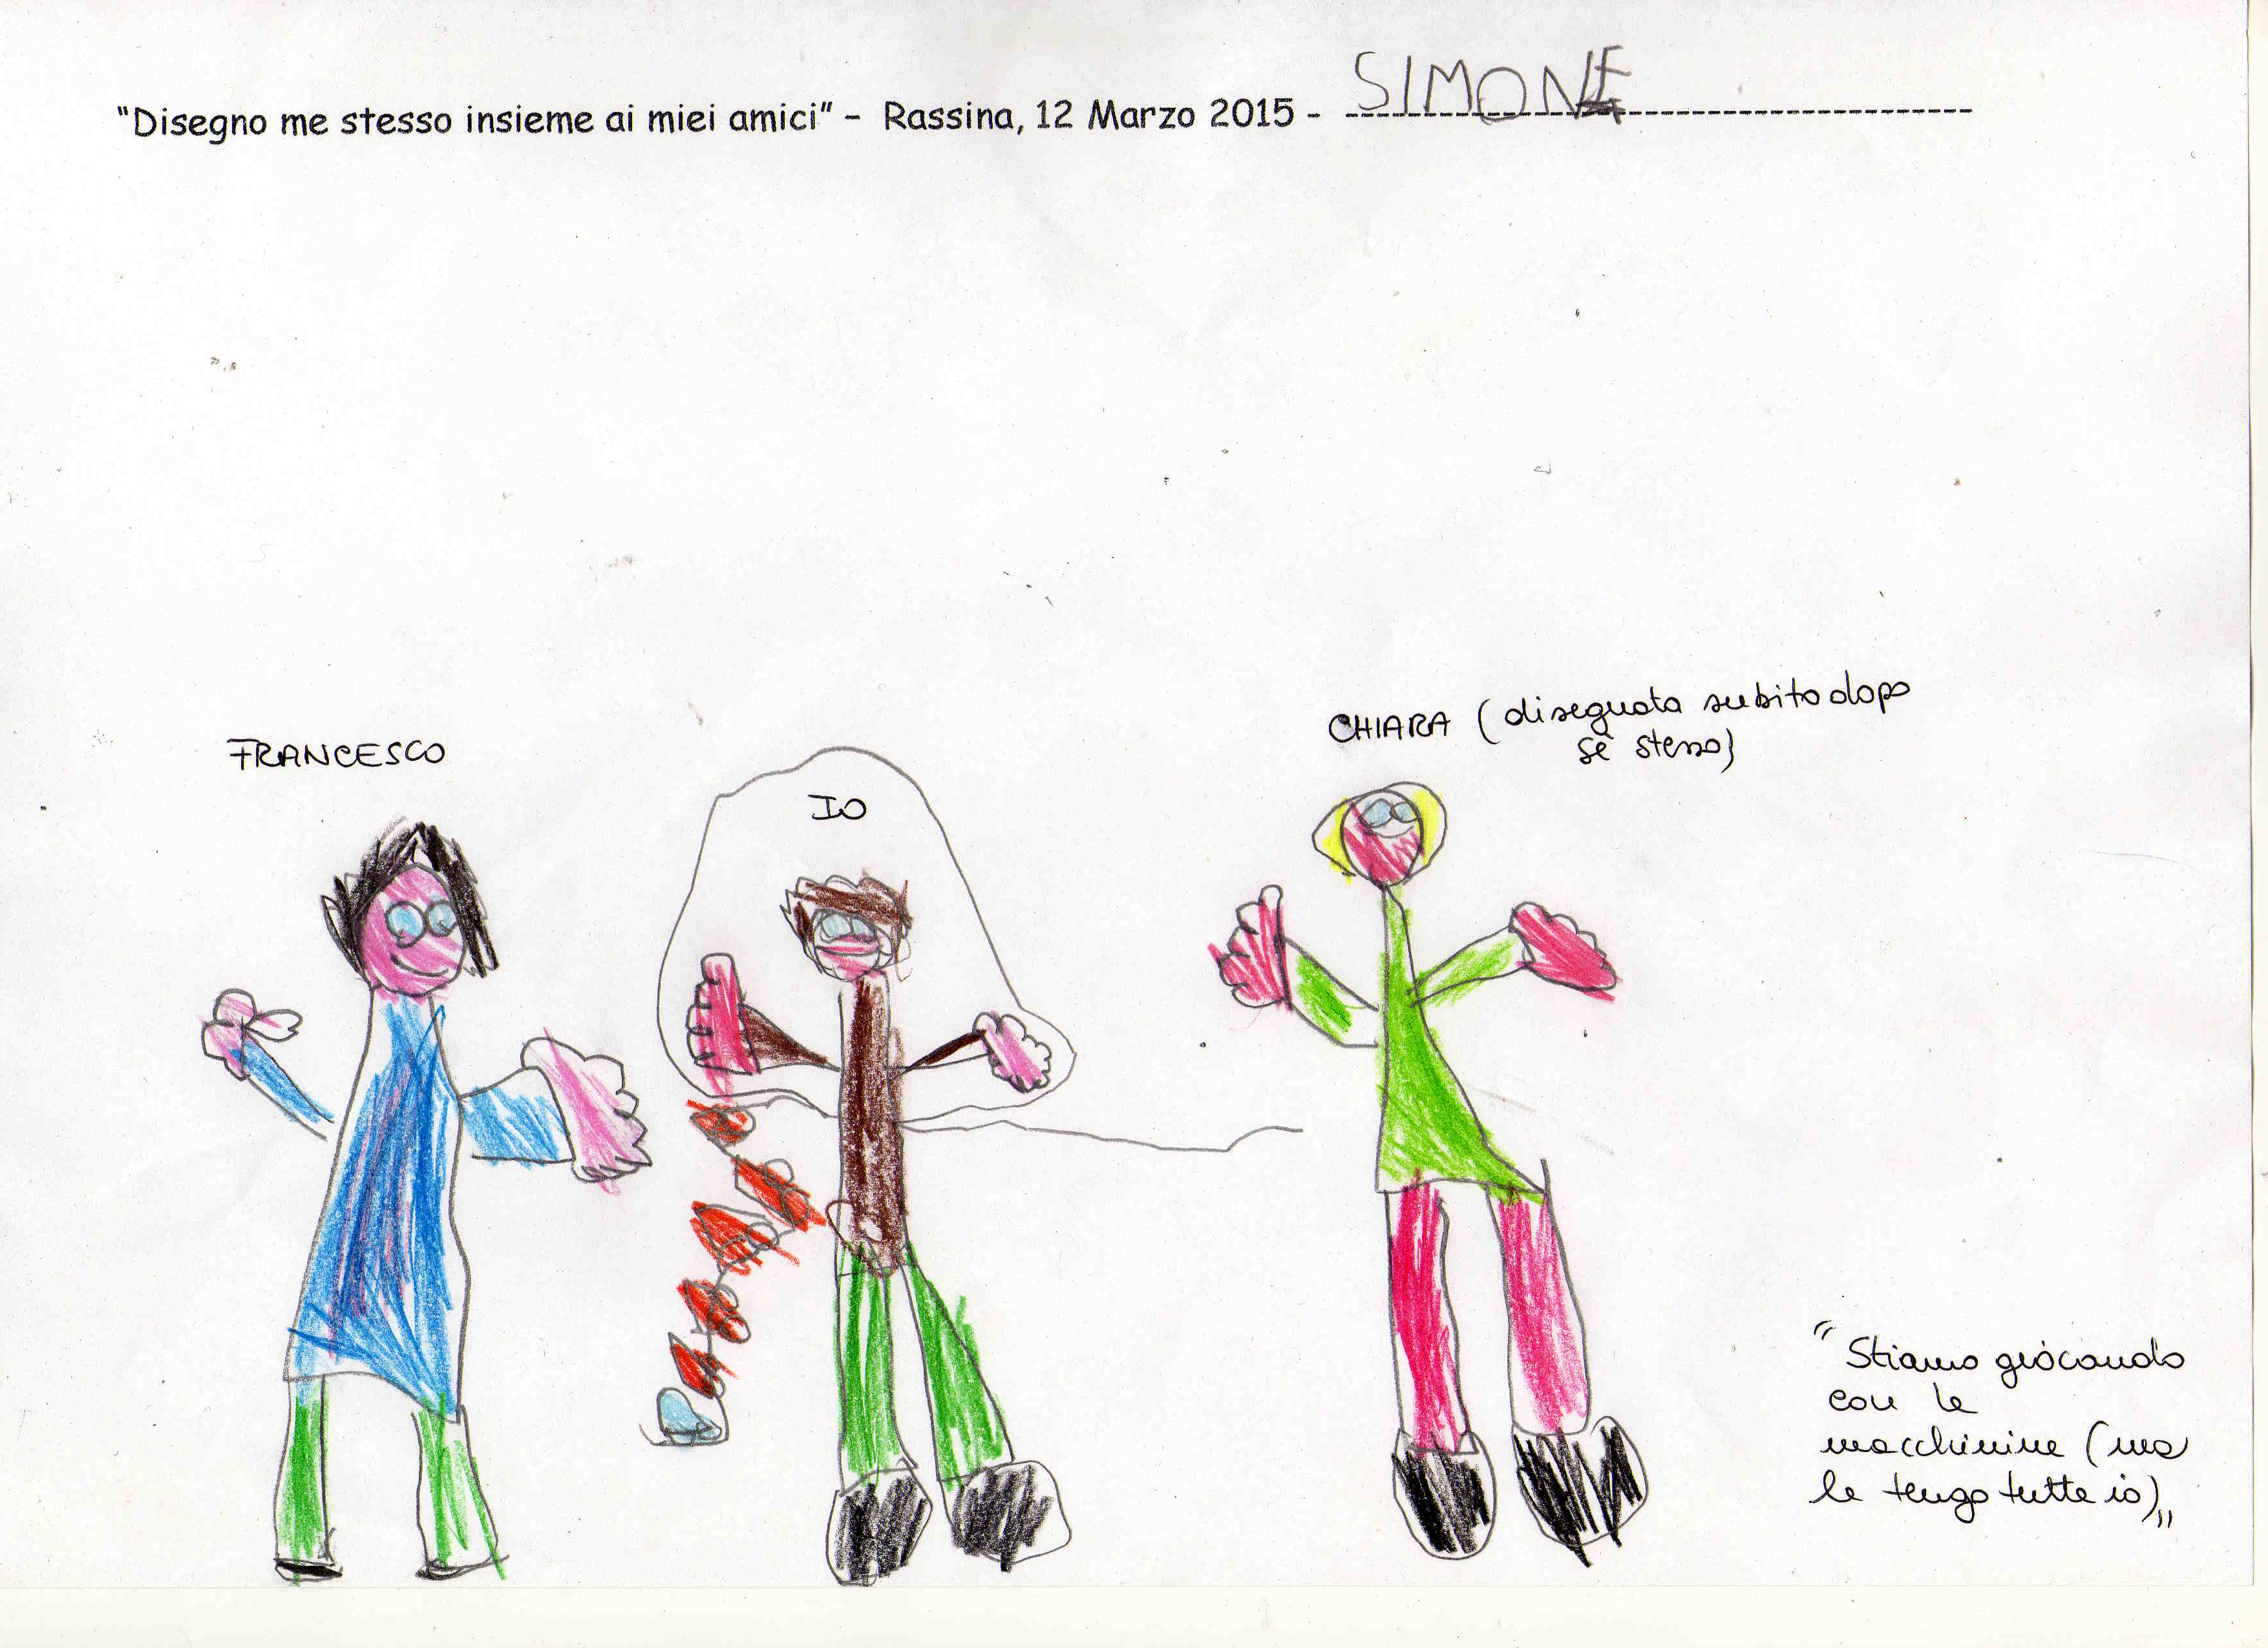 "Disegno me stesso insieme ai miei amici" - Rassina, 12 Marzo 2015 - SIMONE
CHIARA (disegnata subito dopo
sè stesso)
FRANCESCO
IO
"Stiamo giocando
con le
macchinine (ma
le tengo tutte io)"